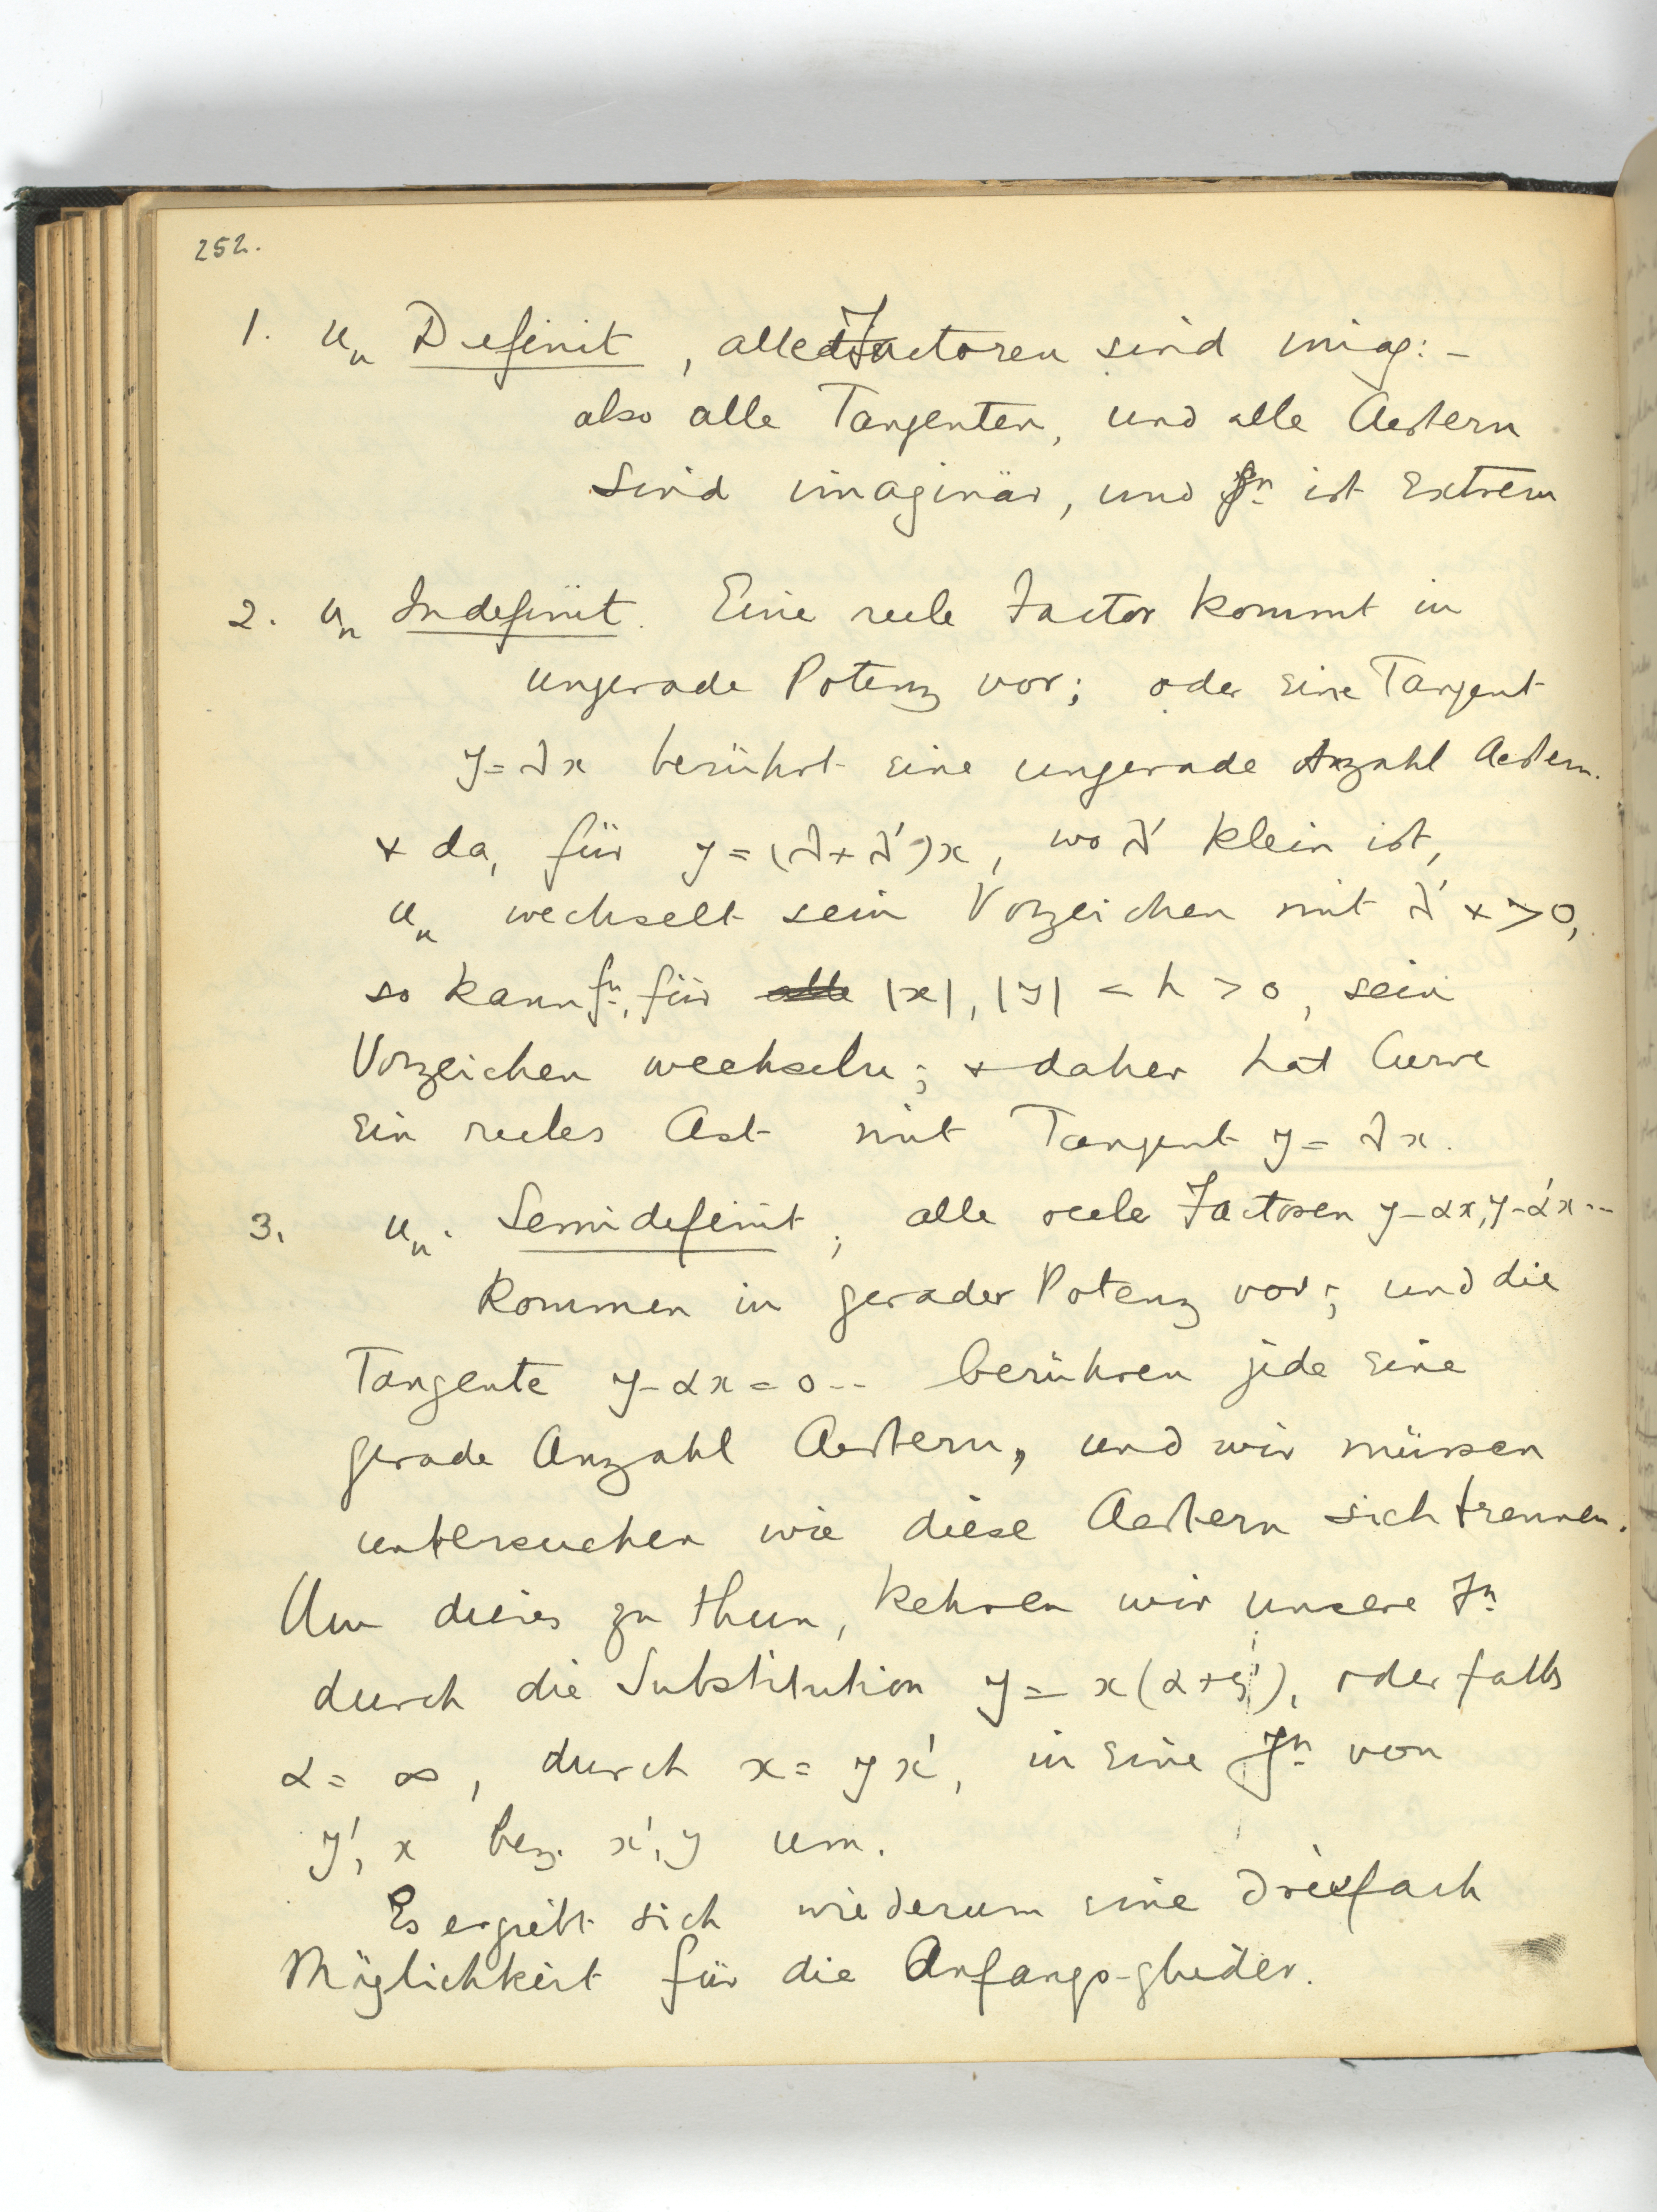 252.
1. uₙ Definit, alle Factoren sind imag: –
also alle Tangenten, und alle Aestern
sind imaginär, und fⁿ ist Extrem
2. uₙ Indefinit. Eine reele Factor kommt in
ungerade Potenz vor; oder eine Tangent
y = λx berührt eine ungerade Anzahl Aestern.
+ da, für y = (λ + λ')x, wo λ' klein ist,
uₙ wechselt sein Vorzeichen mit λ' × > 0,
so kann fⁿ, für |x|, |y| < h > 0, sein
Vorzeichen wechseln; + daher hat Curve
ein reeles Ast mit Tangent y = λx.
3. uₙ. Semidefinit; alle reele Factoren y-αx, y-α'x...
kommen in gerader Potenz vor; und die
Tangente y-αx = 0.. berühren jede eine
gerade Anzahl Aestern, und wir müssen
untersuchen wie diese Aestern sich trennen.
Um dieses zu thun, kehren wir unsere Fⁿ
durch die Substitution y = x(α+y'), oder falls
α = ∞, durch x = yx', in eine Fⁿ von
y', x bez. x', y um.
Es ergiebt sich wiederum eine dreifach
Möglichkeit für die Anfangs-glieder.